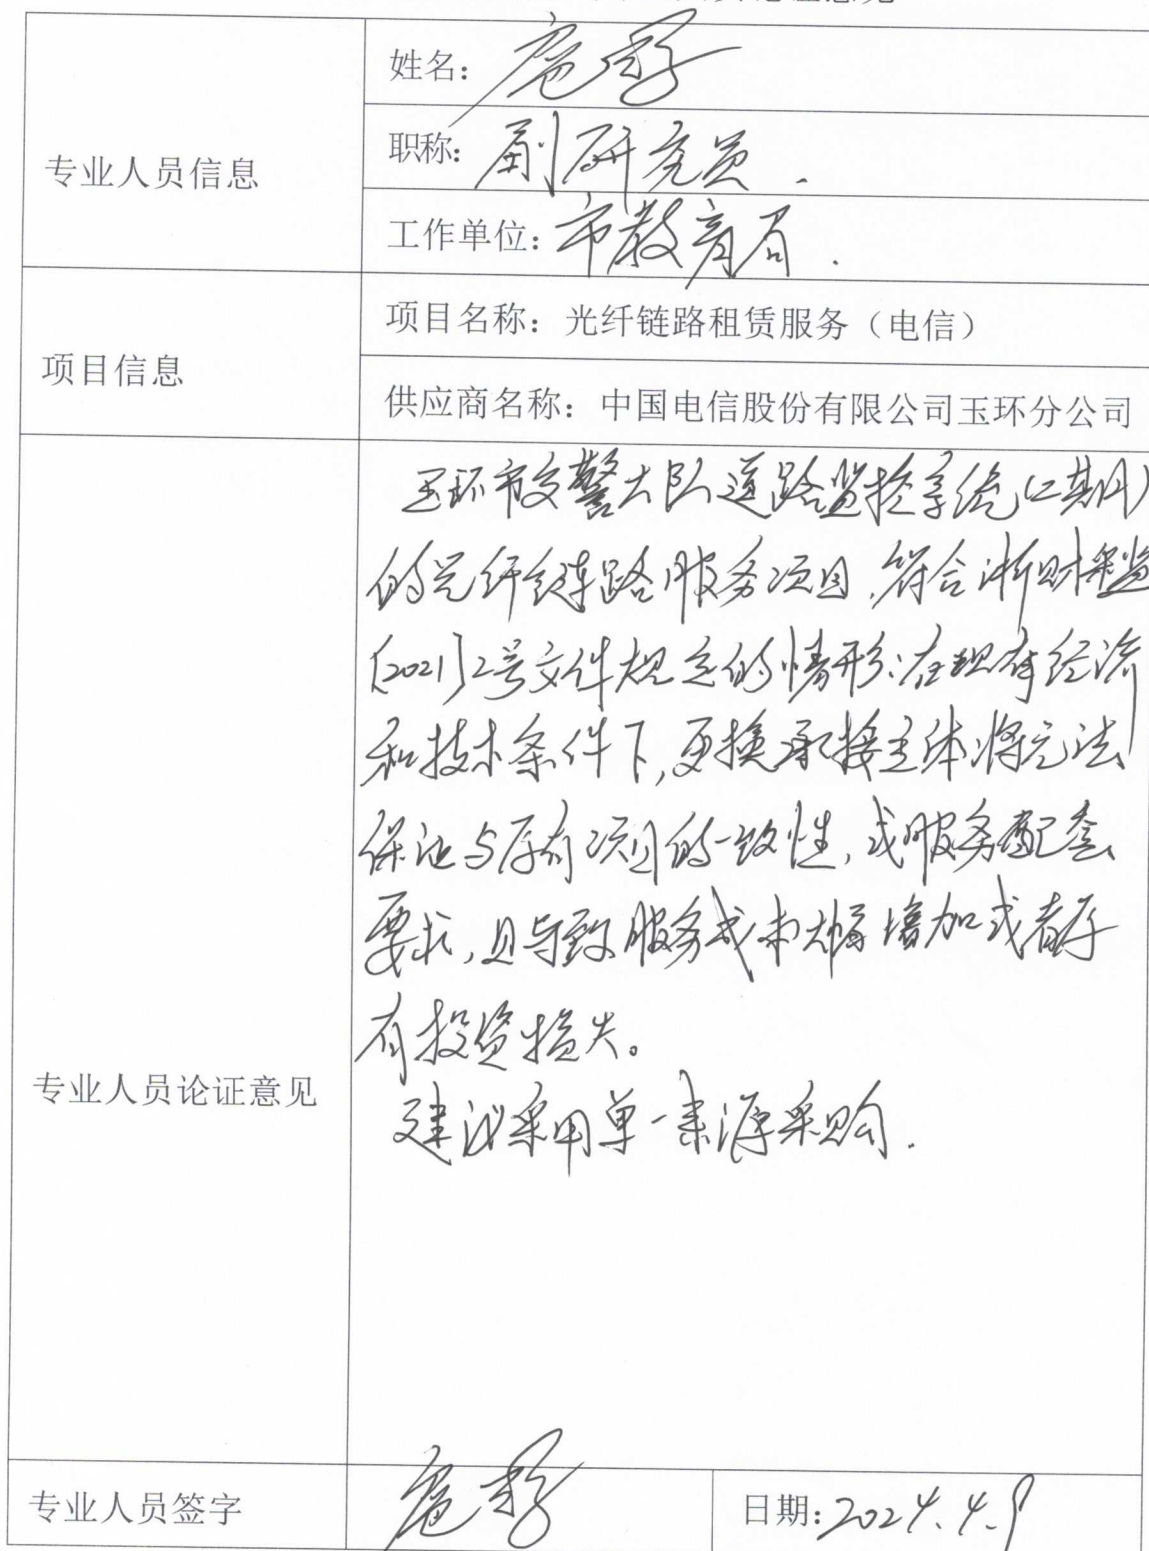 专业人员信息
姓名:
职称: 副研究员.
工作单位: 市教育局.
项目信息
项目名称: 光纤链路租赁服务（电信）
供应商名称: 中国电信股份有限公司玉环分公司
专业人员论证意见
玉环市交警大队道路监控系统(二期)
的光纤链路服务项目,符合浙财采监
[2021]2号文件规定的情形:在现有经济
和技术条件下,更换承接主体将无法
保证与原有项目的一致性,或服务配套
要求,且导致服务成本大幅增加或者存
有投资损失。
建议采用单一来源采购.
专业人员签字
日期: 2024.4.9